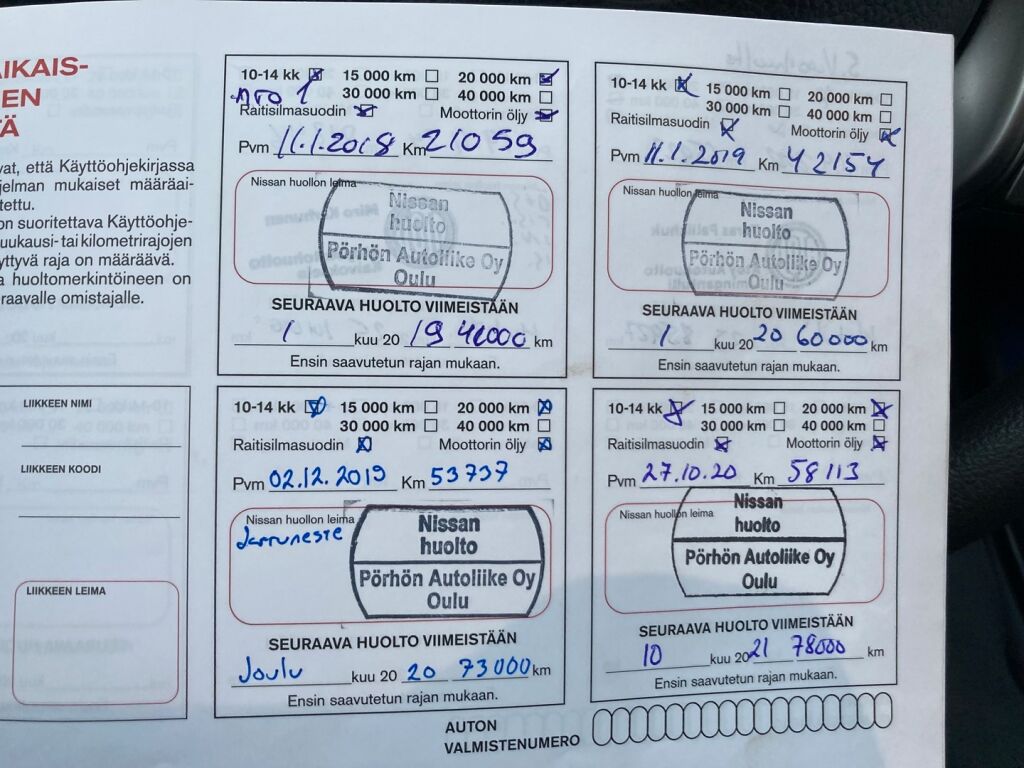 AIKAIS-
EN
TÄ
vat, että Käyttöohjekirjassa
jelman mukaiset määräai-
tettu.
on suoritettava Käyttöohje-
uukausi- tai kilometrirajojen
yttyvä raja on määräävä.
a huoltomerkintöineen on
raavalle omistajalle.
10-14 kk 15 000 km 20 000 km
30 000 km 40 000 km
Raitisilmasuodin Moottorin öljy
Pvm 11.1.2018 Km 21059
Nissan huollon leima
Nissan
huolto
Pörhön Autoliike Oy
Oulu
SEURAAVA HUOLTO VIIMEISTÄÄN
1 kuu 20 19 41000 km
Ensin saavutetun rajan mukaan.
10-14 kk 15 000 km 20 000 km
30 000 km 40 000 km
Raitisilmasuodin Moottorin öljy
Pvm 11.1.2019 Km 42154
Nissan huollon leima
Nissan
huolto
Pörhön Autoliike Oy
Oulu
SEURAAVA HUOLTO VIIMEISTÄÄN
1. kuu 20 20 60000 km
Ensin saavutetun rajan mukaan.
LIIKKEEN NIMI
LIIKKEEN KOODI
LIIKKEEN LEIMA
10-14 kk 15 000 km 20 000 km
30 000 km 40 000 km
Raitisilmasuodin Moottorin öljy
Pvm 02.12.2019 Km 53737
Nissan huollon leima
Jarruneste
Nissan
huolto
Pörhön Autoliike Oy
Oulu
SEURAAVA HUOLTO VIIMEISTÄÄN
Joulu kuu 20 20 73000 km
Ensin saavutetun rajan mukaan.
10-14 kk 15 000 km 20 000 km
30 000 km 40 000 km
Raitisilmasuodin Moottorin öljy
Pvm 27.10.20 Km 58113
Nissan huollon leima
Nissan
huolto
Pörhön Autoliike Oy
Oulu
SEURAAVA HUOLTO VIIMEISTÄÄN
10 kuu 20 21 78000 km
Ensin saavutetun rajan mukaan.
AUTON
VALMISTENUMERO